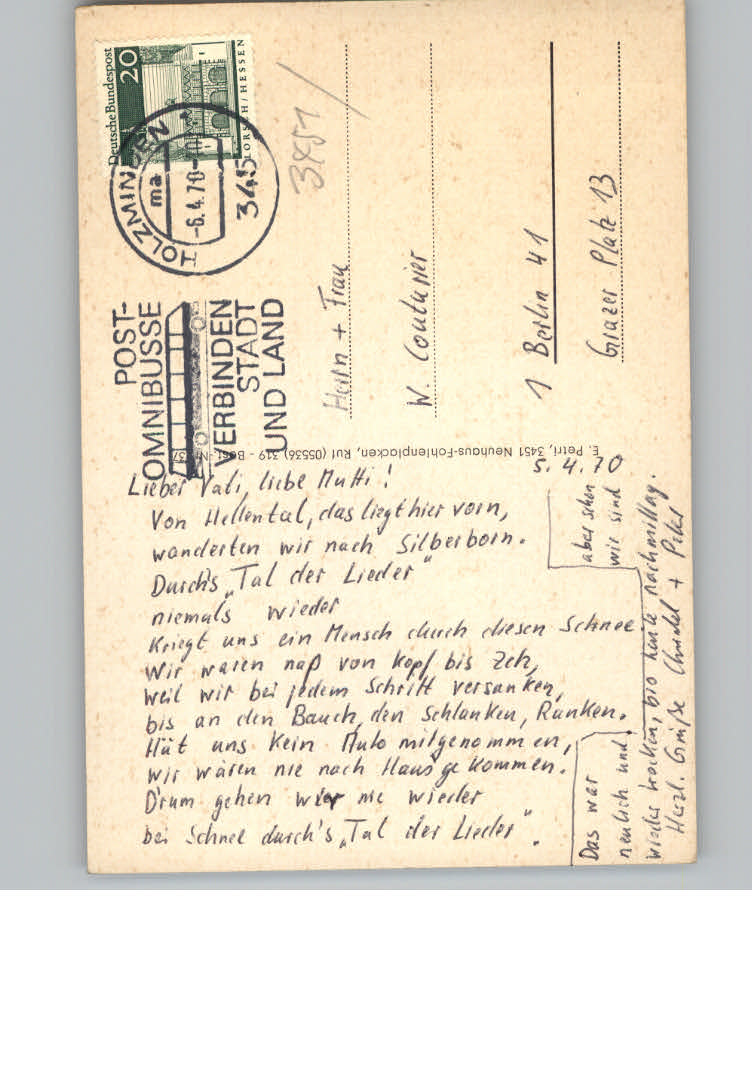 Deutsche Bundespost
20
LORSCH/HESSEN
HOLZMINDEN
ma
-6.4.70-
345
POST-
OMNIBUSSE
VERBINDEN
STADT
UND LAND
3451
Herrn + Frau
W. Couturier
1 Berlin 41
Grazer Platz 13
E. Petri, 3451 Neuhaus-Fohlenplacken, Ruf (05536) 319 - Best.-Nr.
5.4.70
Lieber Vati, liebe Mutti!
Von Hellental, das liegt hier vorn,
wanderten wir nach Silberborn.
Durch's „Tal der Lieder"
niemals wieder
Kriegt uns ein Mensch durch diesen Schnee.
Wir waren naß von Kopf bis Zeh,
weil wir bei jedem Schritt versanken,
bis an den Bauch, den Schlanken, Ranken.
Hät uns kein Auto mitgenommen,
wir wären nie nach Haus gekommen.
Drum gehen wir nie wieder
bei Schnee durch's „Tal der Lieder".
Das war
neulich und
aber schon
wir sind
wieder trocken, bis heute nachmittag.
Herzl. Grüße + Peter